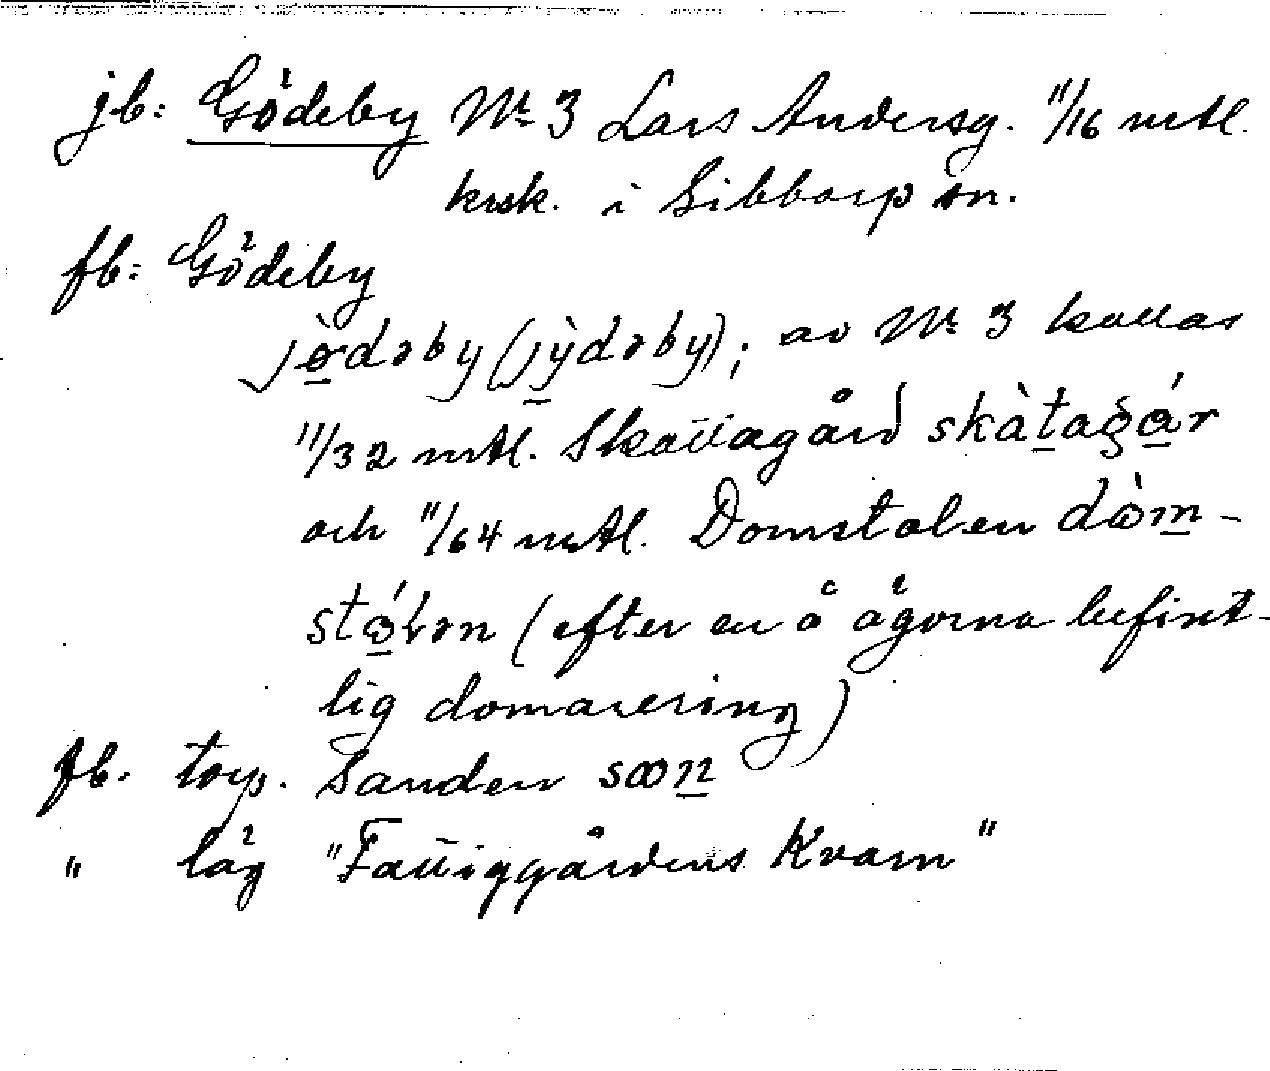 jb: Gödeby Nr 3 Lars Andersg. 11/16 mtl.
krsk. i Sibbarp sn.
fb: Gödeby
jø̀dəby (jỳdəby); av Nr 3 kallas
11/32 mtl. Skattagård skàtagár
och 11/64 mtl. Domstolen dòm-
stólən (efter en å ägorna befint-
lig domarering)
fb. torp. Sanden san
" låg "Fattiggårdens Kvarn"